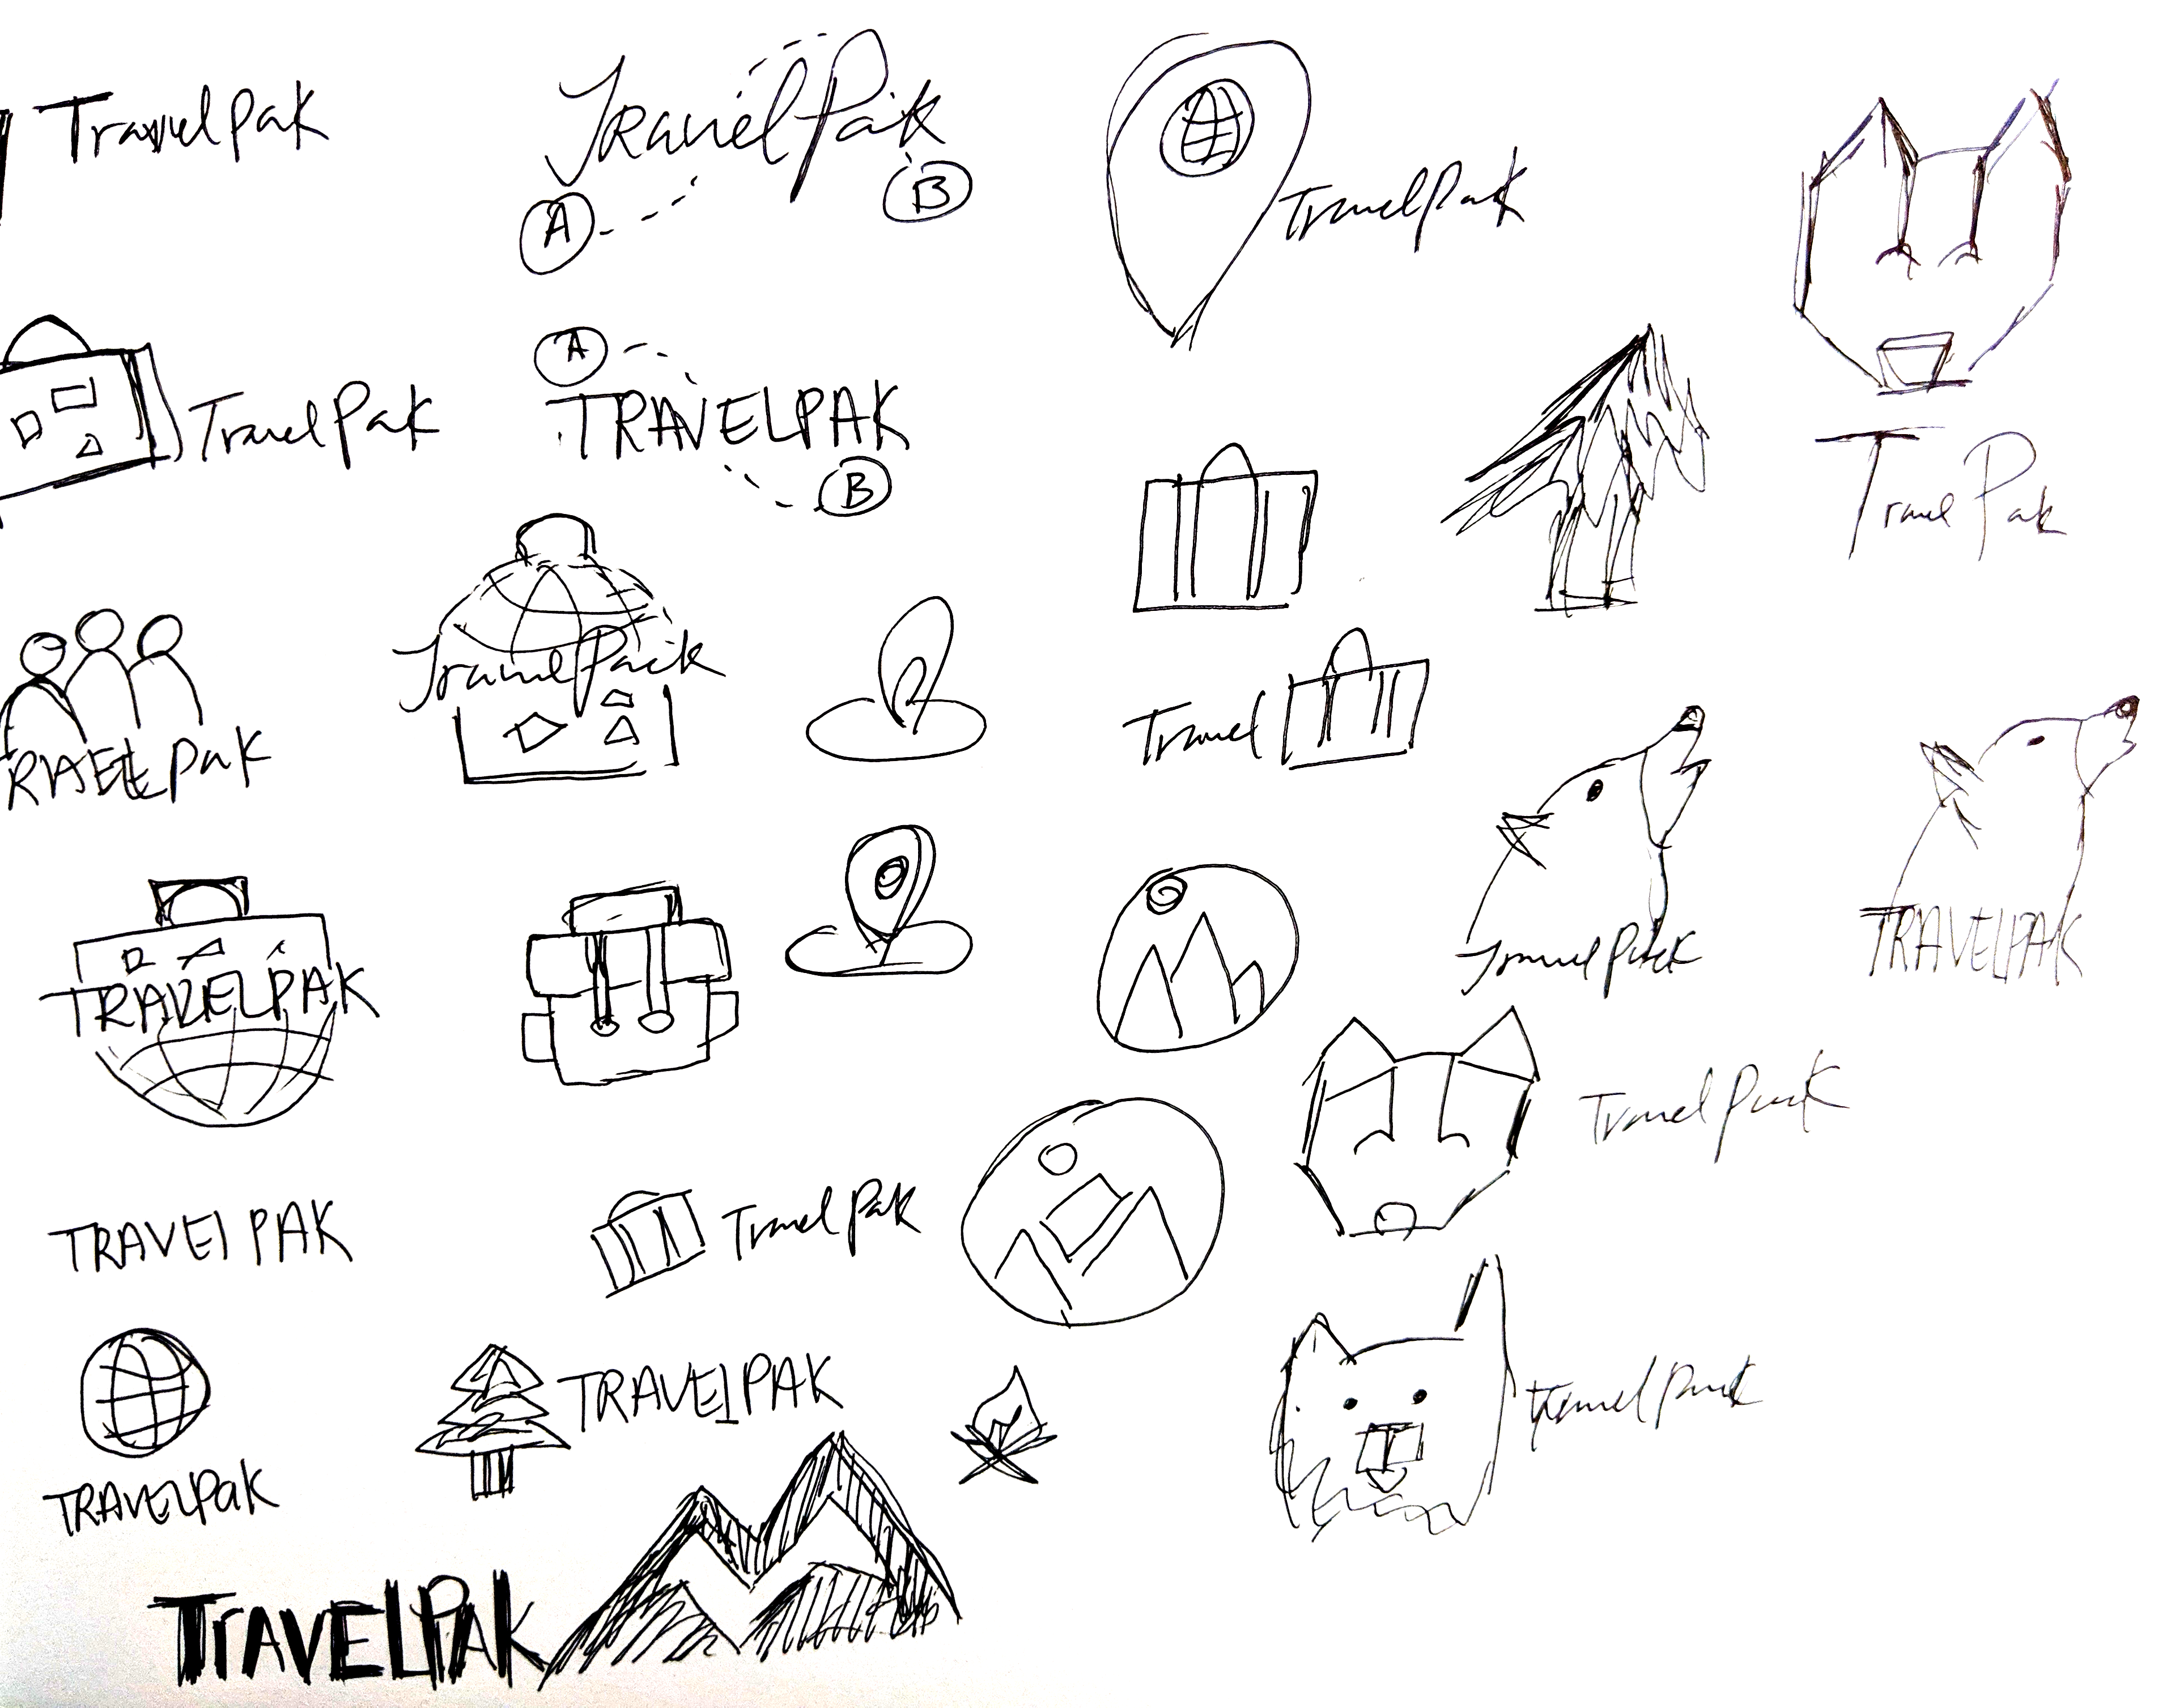 TravelPak
TravelPak
A
B
TravelPak
TravelPak
A
TRAVELPAK
B
TravelPak
TravelPack
RAVELPak
Travel
TravelPack
TRAVELPAK
TRAVELPAK
TravelPack
TRAVELPAK
TravelPak
TRAVELPAK
TravelPack
TRAVELPak
TRAVELPAK